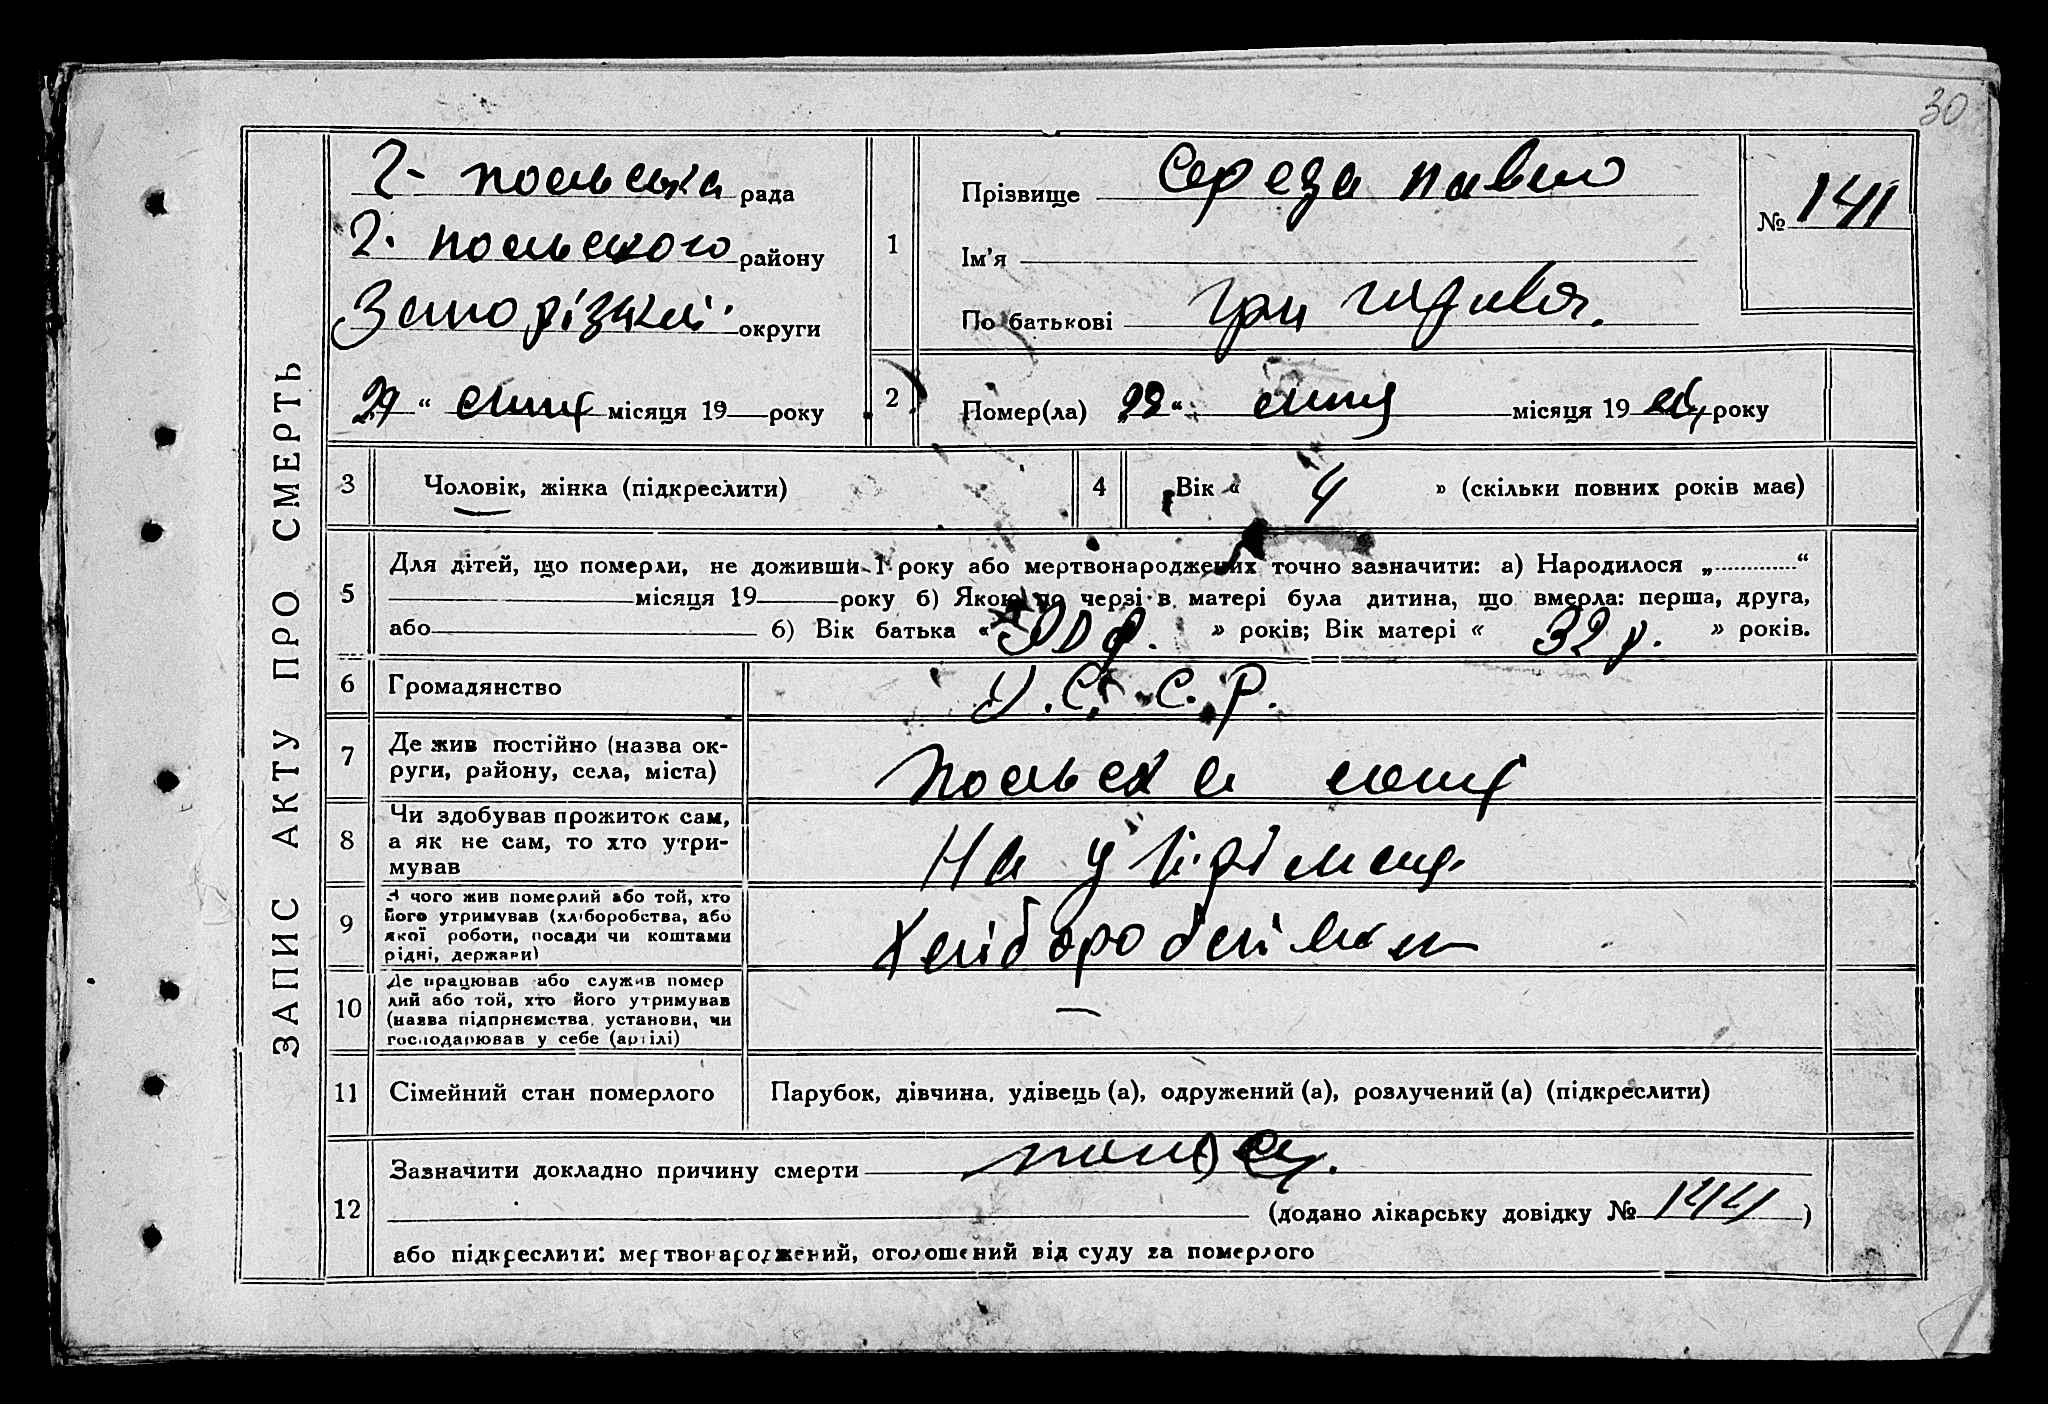 30
ЗАПИС АКТУ ПРО СМЕРТЬ
Г- польська рада
Г. польського району
Запорізької округи
29 " січня місяця 19 року
1
Прізвище Середа Павло
Ім'я
По батькові Григоров.
№ 141
2
Помер(ла) 22 " січня місяця 19 року
3 Чоловік, жінка (підкреслити)
4 Вік « 4 » (скільки повних років має)
5
Для дітей, що померли, не доживши 1 року або мертвонароджених точно зазначити: а) Народилося „ “
місяця 19 року б) Якою по черзі в матері була дитина, що вмерла: перша, друга,
або б) Вік батька « р. » років; Вік матері « 32 р. » років.
6 Громадянство У.С.С.Р.
7 Де жив постійно (назва ок-
руги, району, села, міста)
Польськ
8 Чи здобував прожиток сам,
а як не сам, то хто утри-
мував
На утріманці
9 З чого жив померлий або той, хто
його утримував (хліборобства, або
якої роботи, посади чи коштами
рідні, держави)
10 Де працював або служив помер
лий або той, хто його утримував
(назва підприємства, установи, чи
господарював у себе (артілі)
—
11 Сімейний стан померлого Парубок, дівчина, удівець (а), одружений (а), розлучений (а) (підкреслити)
12 Зазначити докладно причину смерти
(додано лікарську довідку № 144 )
або підкреслити: мертвонароджений, оголошений від суду за померлого